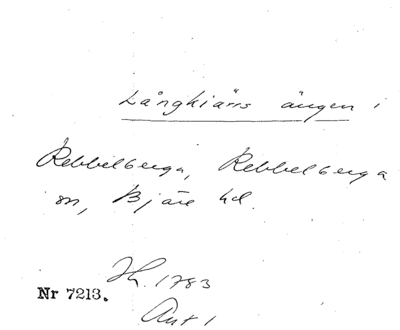 Långkiärrs ängen,
Rebbelberga, Rebbelberga
sn, Bjäre hd.
Nr 7213. Th. 1783
Akt 1